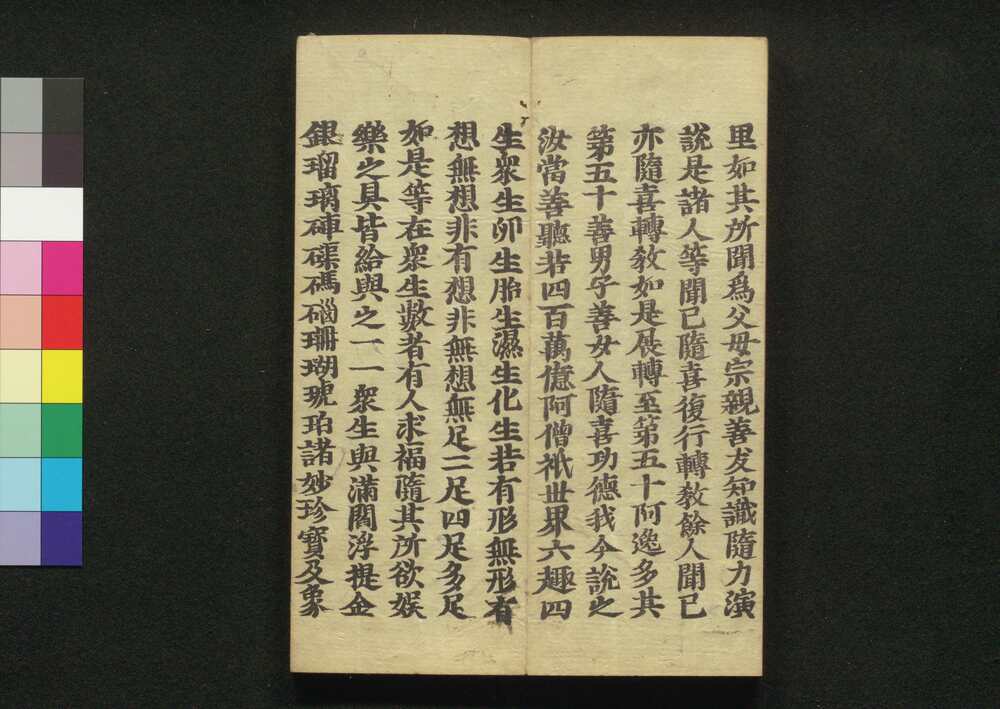 里如其所聞爲父母宗親善友知識隨力演
說是諸人等聞已隨喜復行轉教餘人聞已
亦隨喜轉教如是展轉至第五十阿逸多其
第五十善男子善女人隨喜功德我今說之
汝當善聽若四百萬億阿僧祇世界六趣四
生衆生卵生胎生濕生化生若有形無形有
想無想非有想非無想無足二足四足多足
如是等在衆生數者有人求福隨其所欲娛
樂之具皆給與之一一衆生與滿閻浮提金
銀瑠璃硨磲碼碯珊瑚琥珀諸妙珍寶及象